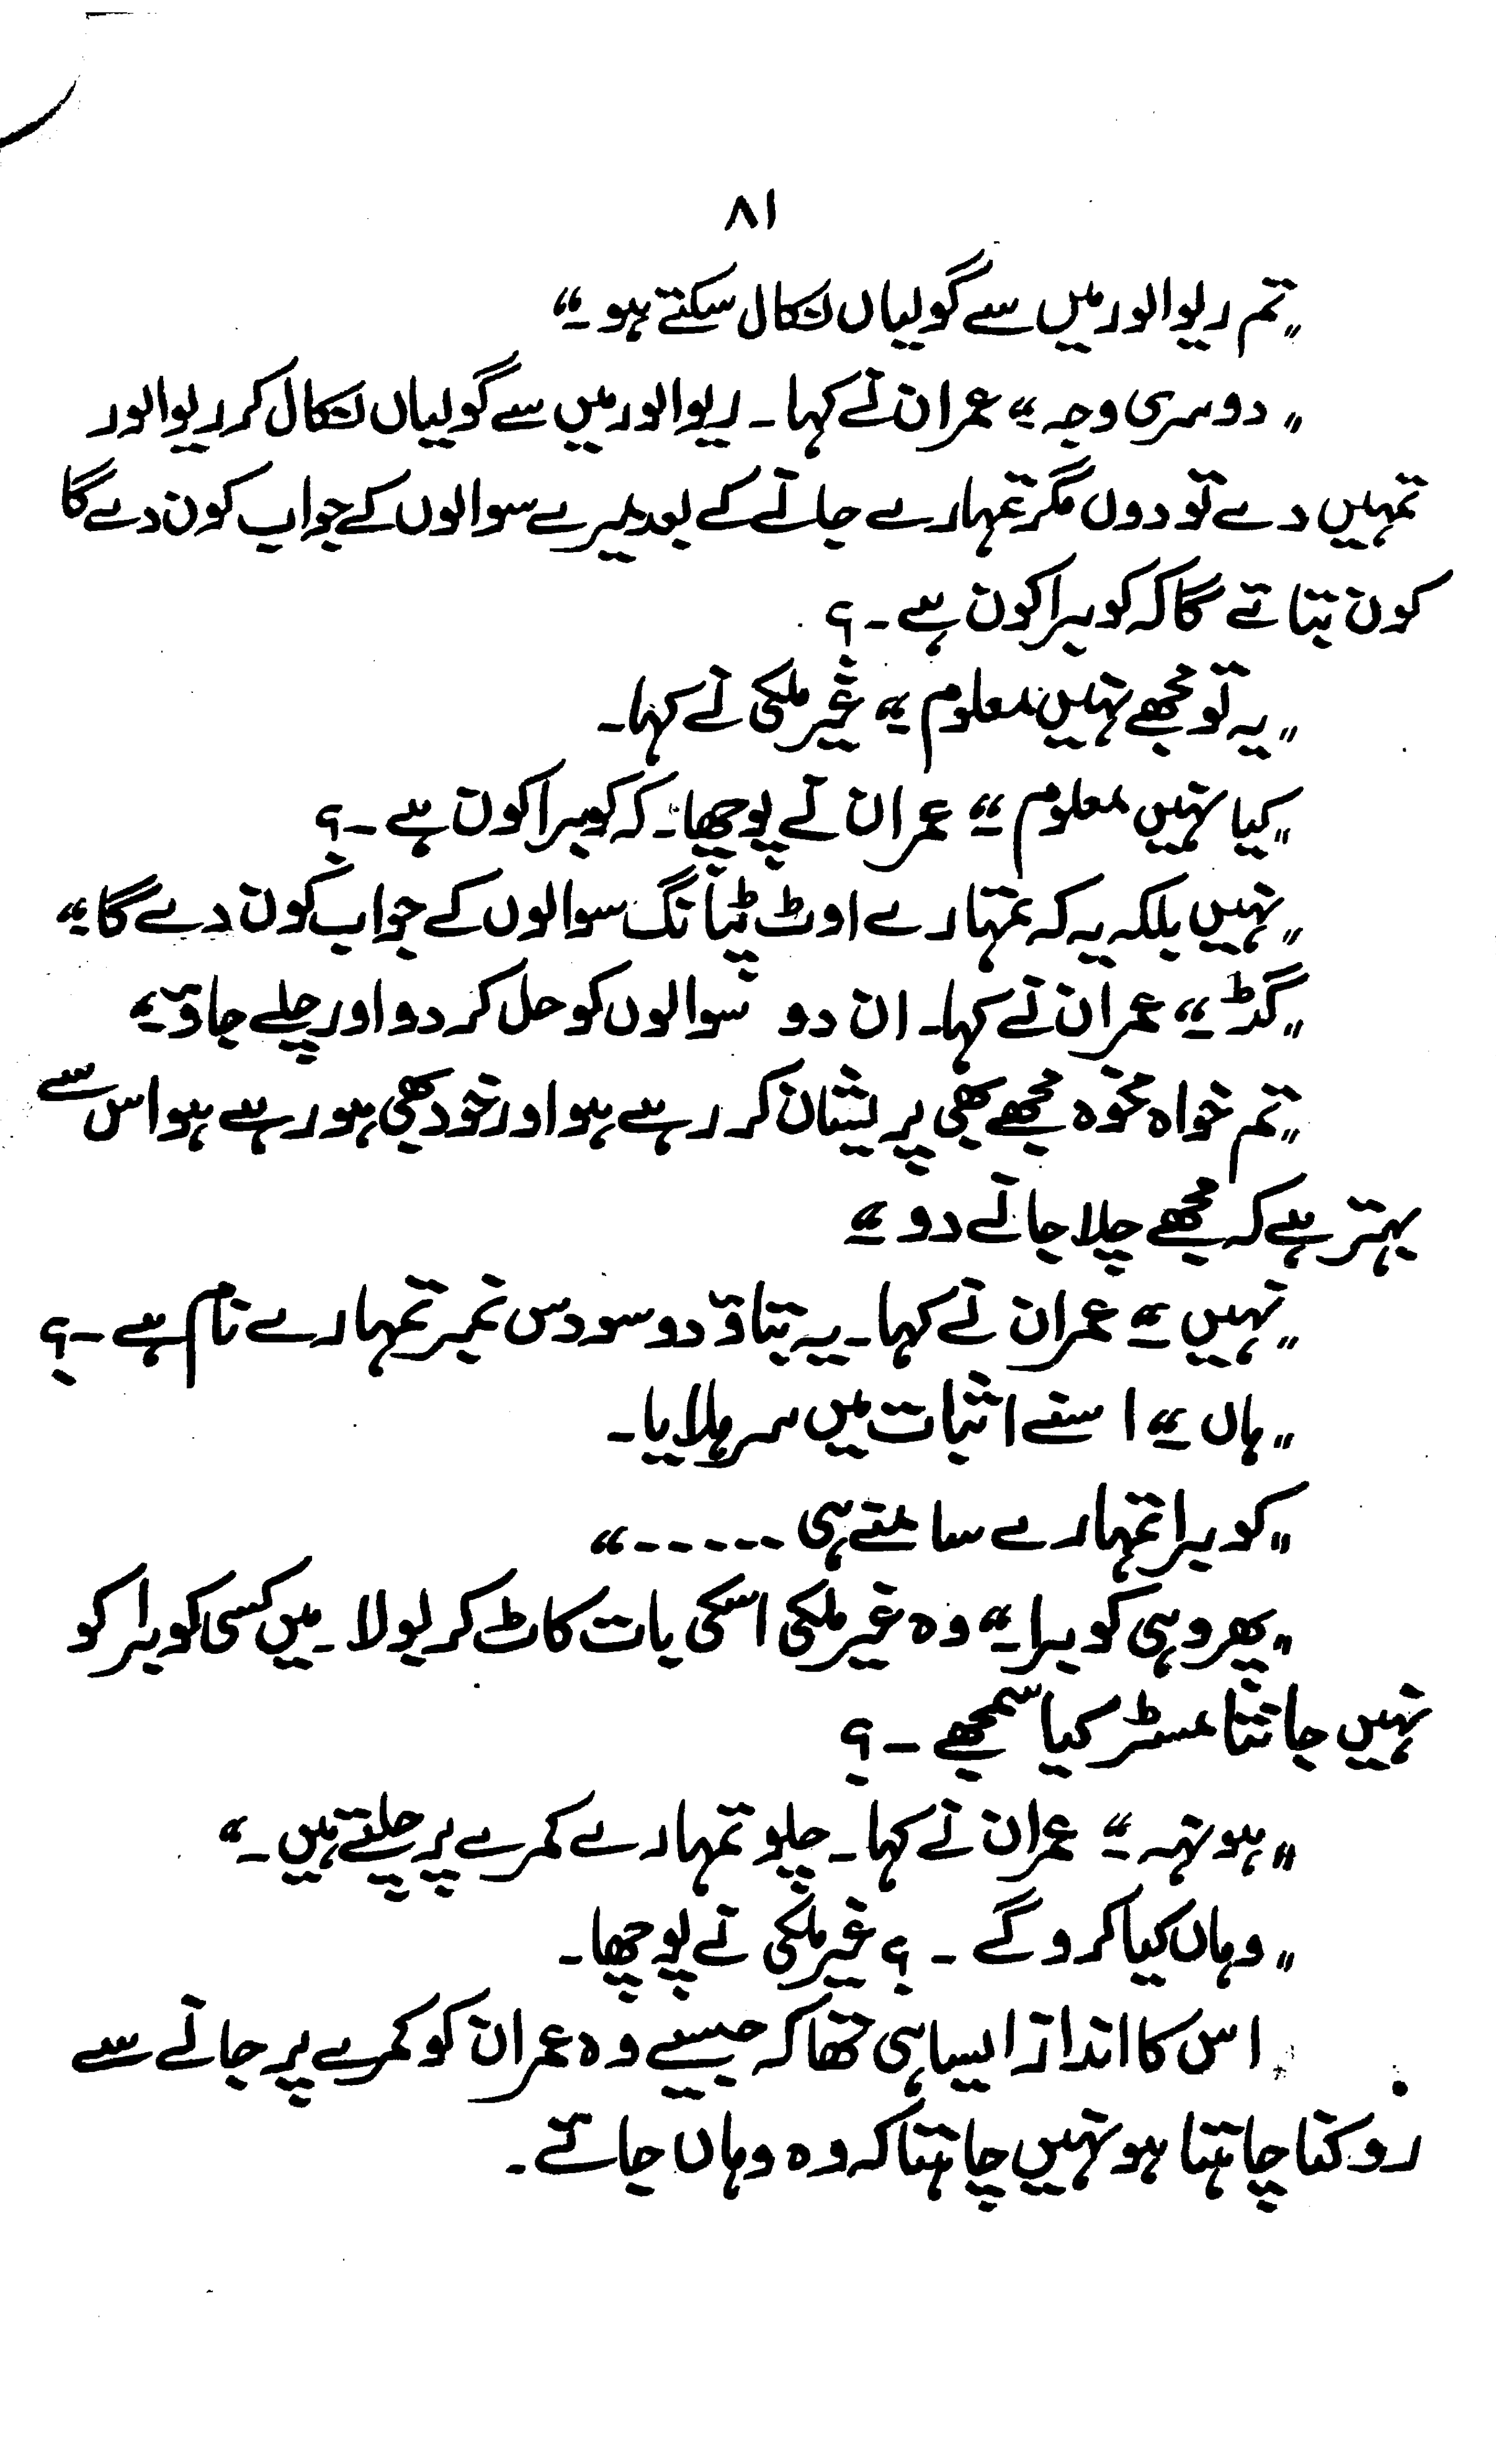 ۸۱
"تم ریوالور میں سے گولیاں نکال سکتے ہو۔"
"دوسری وجہ۔" عمران نے کہا۔ ریوالور میں سے گولیاں نکال کر ریوالور
تمہیں دے تو دوں مگر تمہارے جانے کے بعد میرے سوالوں کے جواب کون دے گا
کون بتائے گا کہ کوبرا کون ہے۔؟
"یہ تو مجھے نہیں معلوم۔" غیر ملکی نے کہا۔
"کیا نہیں معلوم۔" عمران نے پوچھا۔ کہ کوبرا کون ہے۔؟
"نہیں بلکہ یہ کہ تمہارے اوٹ پٹانگ سوالوں کے جواب کون دے گا۔"
"گڈ۔" عمران نے کہا۔ ان دو سوالوں کو حل کر دو اور چلے جاؤ۔"
"تم خواہ مخوہ مجھے بھی پریشان کر رہے ہو اور خود بھی ہو رہے ہو اس سے
بہتر ہے کہ مجھے چلا جانے دو۔"
"نہیں۔" عمران نے کہا۔ یہ بتاؤ دو سو دس نمبر تمہارے نام ہے۔؟
"ہاں۔" اسنے اثبات میں سر ہلایا۔
"کوبرا تمہارے سامنے ہی ......"
"پھر وہی کوبرا۔" وہ غیر ملکی اسکی بات کاٹ کر بولا۔ میں کسی کوبرا کو
نہیں جانتا مسٹر کیا سمجھے۔؟
"ہونہہ۔" عمران نے کہا۔ چلو تمہارے کمرے پر چلتے ہیں۔"
"وہاں کیا کرو گے۔؟ غیر ملکی نے پوچھا۔
اس کا انداز ایسا ہی تھا کہ جیسے وہ عمران کو کمرے پر جانے سے
روکنا چاہتا ہو نہیں چاہتا کہ وہ وہاں جائے۔